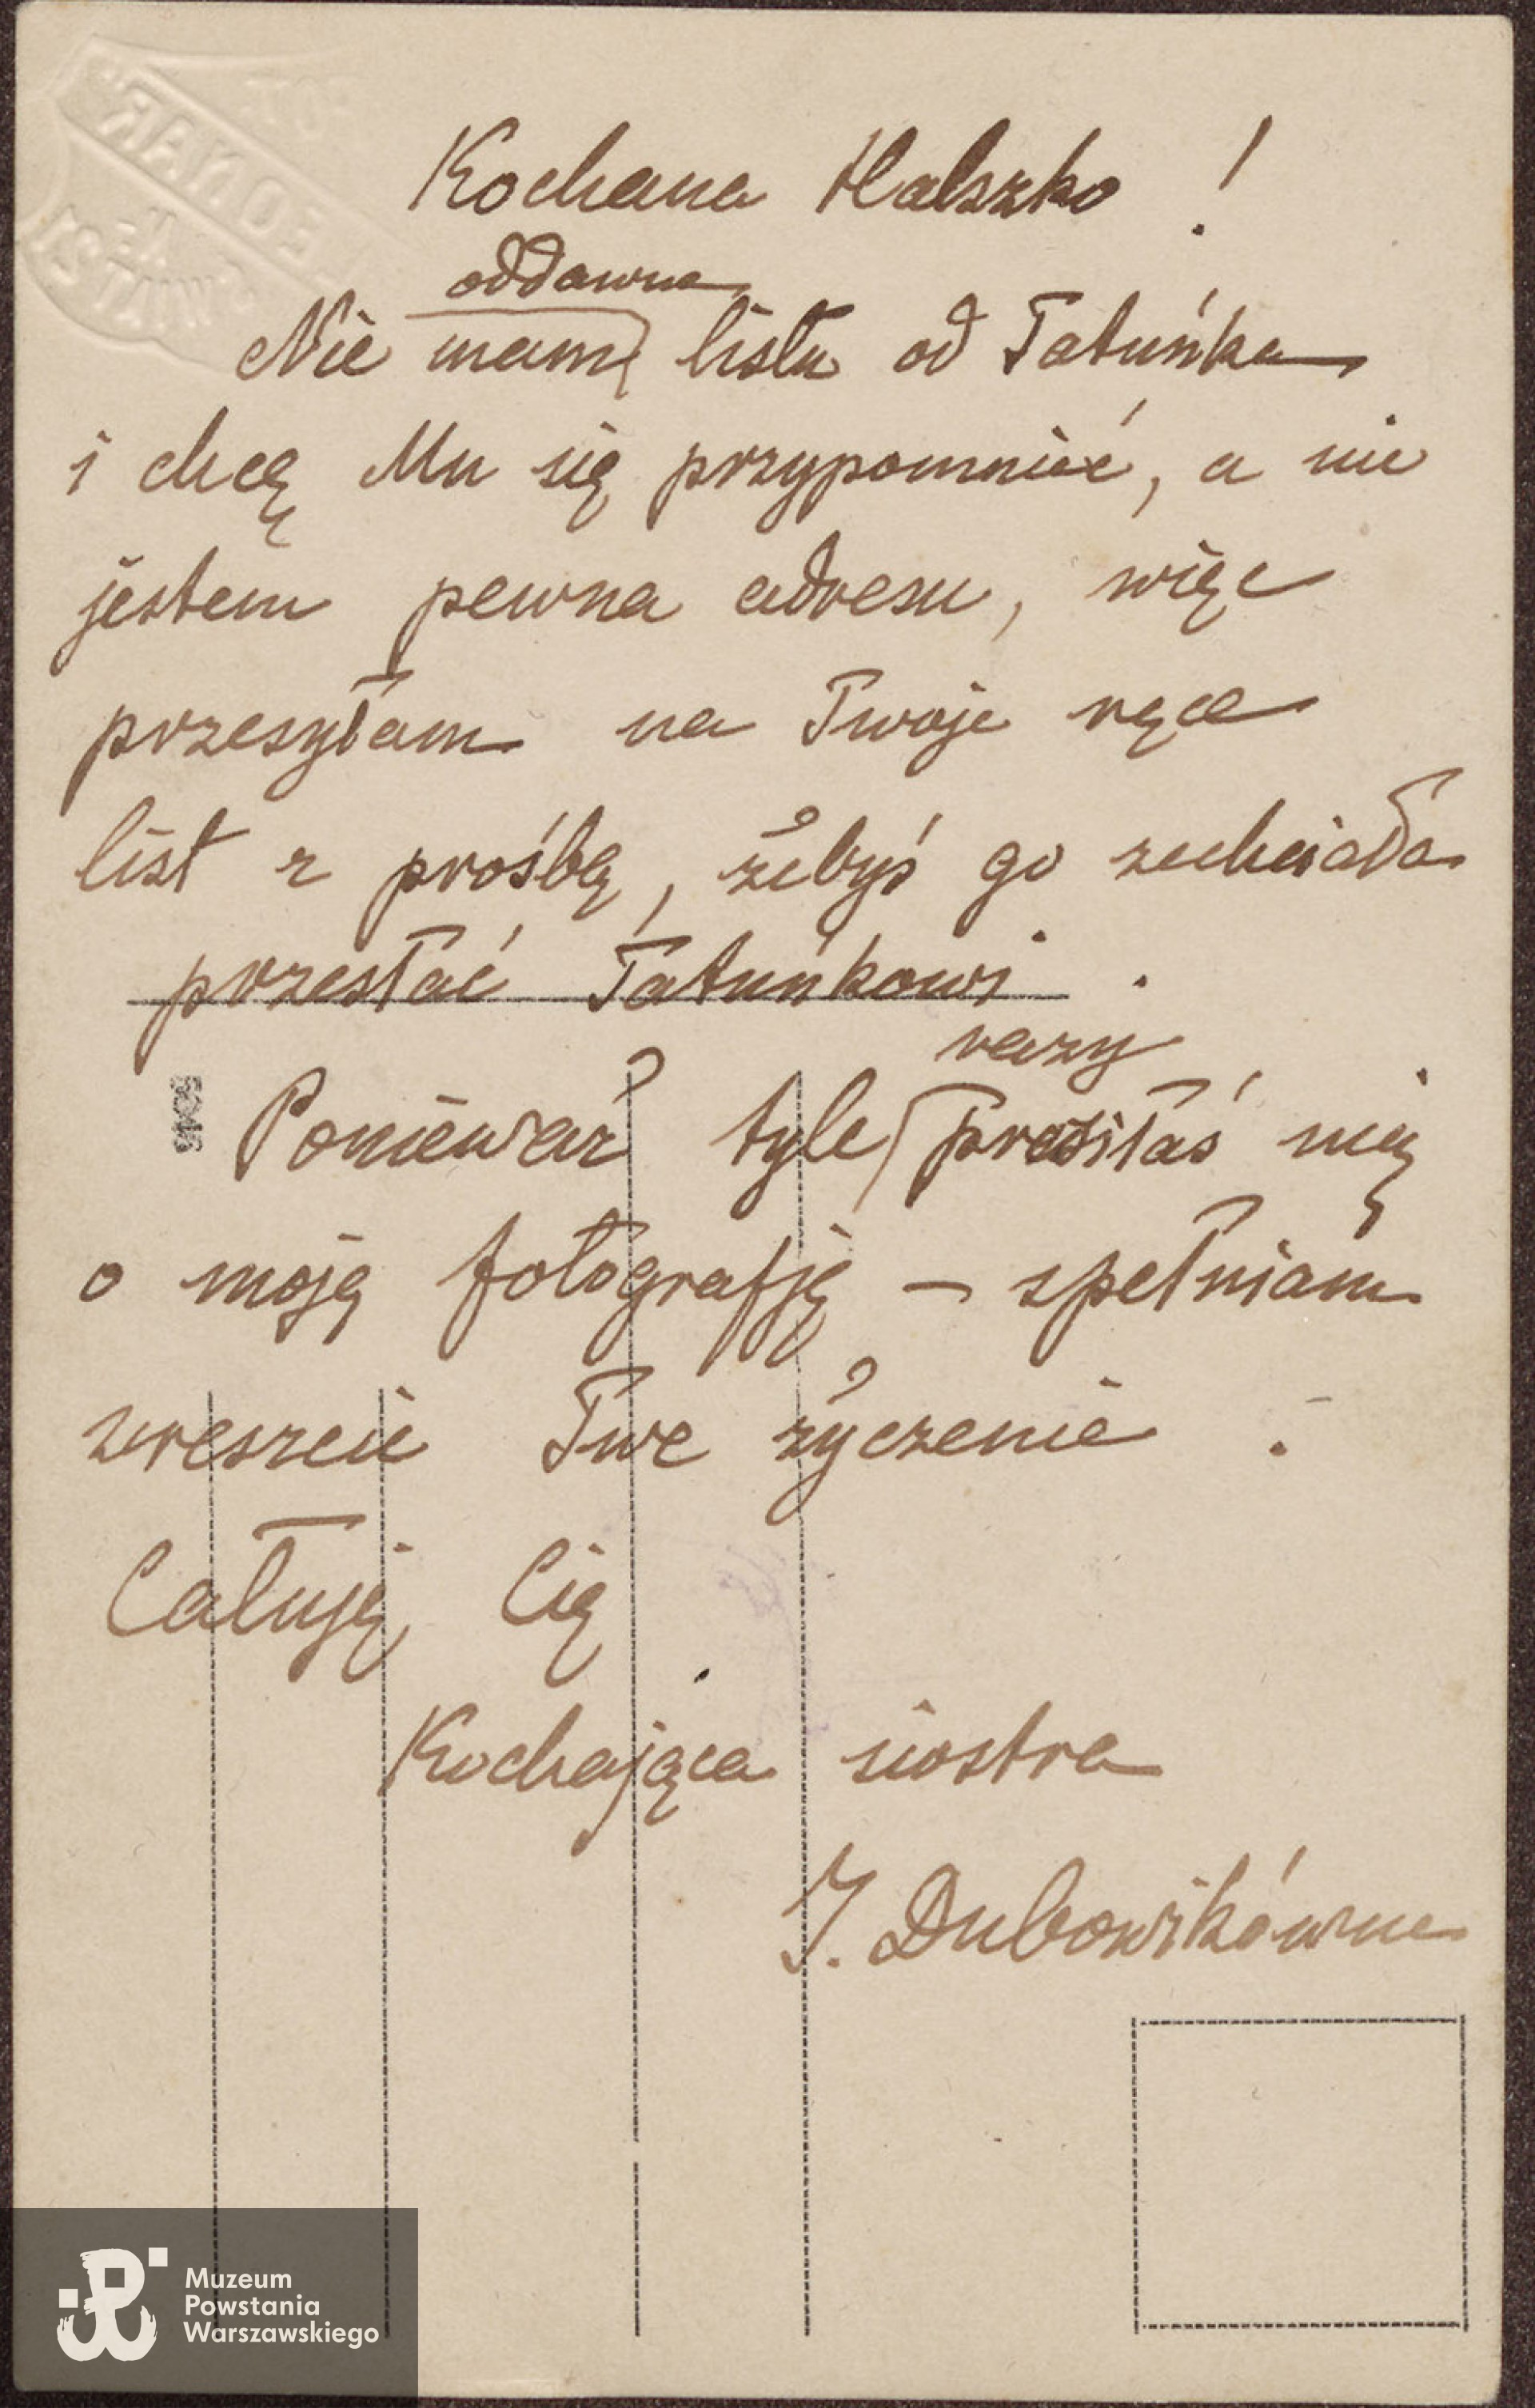 Kochana Halszko !
oddawna
Nie mam listu od Tatuńka
i chcę Mu się przypomnieć, a nie
jestem pewna adresu, więc
przesyłam na Twoje ręce
list z prośbą, żebyś go zechciała
przesłać Tatuńkowi .
razy
Ponieważ tyle prosiłaś mię
o moją fotografję – spełniam
wreszcie Twe życzenie .
Całuję Cię
Kochająca siostra
J. Dubowikówna
Muzeum
Powstania
Warszawskiego